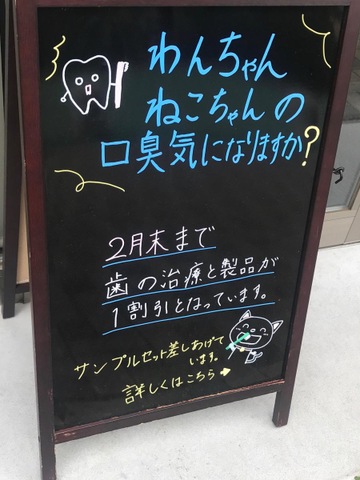 わんちゃん
ねこちゃんの
口臭気になりますか?
2月末まで
歯の治療と製品が
1割引となっています。
サンプルセット差しあげて
います。
詳しくはこちら→